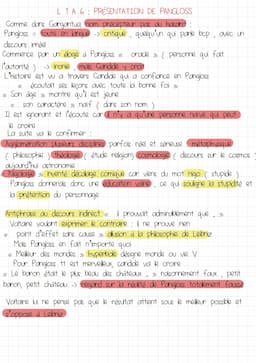 L 1 A 6 : PRÉSENTATION DE PANGLOSS
Comme dans Gargantua, nom précepteur pas au hasard :
Pangloss = touts en langue -> critique, quelqu'un qui parle bcp, avec un
discours inutile
Commence par un éloge à Pangloss « oracle » ( personne qui fait
l'autorité ) -> ironie, mais Candide y croit
L'histoire est vu a travers Candide qui a confiance en Pangloss
« écoutait ses leçons avec toute la bonne foi »
« Son âge » montre qu'il est jeune
« son caractère » naïf ( dans son nom )
Il est ignorant et l'écoute car il n'y a qu'une personne naïve qui peut
le croire
La suite va le confirmer :
Agglomération plusieurs disciplines parfois réel et sérieuse : métaphysique
( philosophie ), théologie ( étude religion ), cosmologie ( discours sur le cosmos )
aujourd'hui astronomie
" Nigologie " inventé décalage comique car viens du mot nigo ( stupide )
Pangloss donnerais donc une éducation vaine, ce qui souligne la stupidité et
la prétention du personnage
Antiphrase au discours indirect « il prouvait admirablement que »
Voltaire voulait exprimer le contraire : il ne prouve rien
« point d'effet sans cause » allusion à la philosophie de Leibniz
Mais Pangloss en fait n'importe quoi
« Meilleur des mondes » hyperbole désigne monde ou vie V.
Pour Pangloss tt est merveilleux, candide va le croire
« Le baron était le plus beau des châteaux » raisonnement faux, petit
baron, petit château -> Regard sur la réalité de Pangloss totalement faussé
Voltaire lui ne pense pas que le résultat atteint sous le meilleur possible et
s'oppose à Leibniz